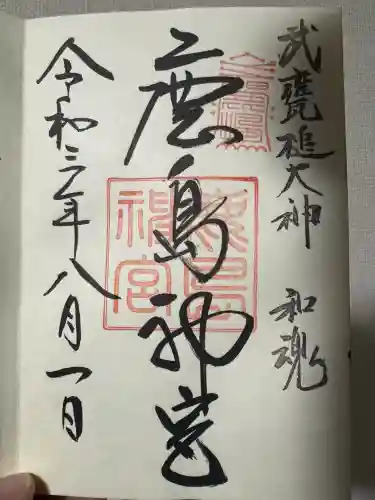 武甕槌大神 和魂
鹿島神宮
鹿島神宮
令和三年八月一日